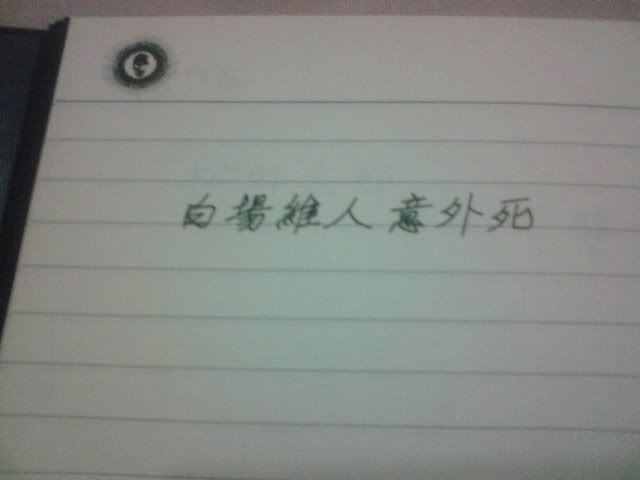 白揚維人 意外死